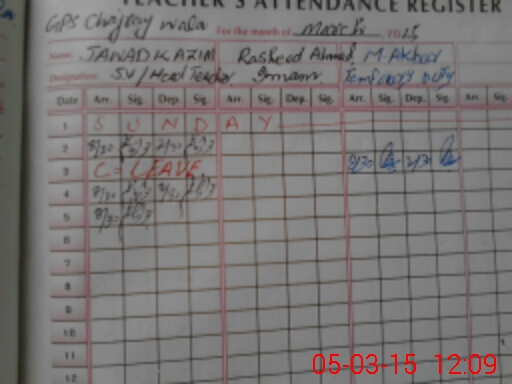 TEACHER'S ATTENDANCE REGISTER
GPS Chajray wala For the month of March 2015
Name: JAWAD KAZIM Rasheed Ahmed M. Akbar
Designation: SV/Head Teacher Imam Temporary Duty
Date Arr. Sig. Dep. Sig. Arr. Sig. Dep. Sig. Arr. Sig. Dep. Sig. Arr. Sig.
1 S U N D A Y
2 8/30 2/30
3 C = LEAVE. 8/30 2/30
4
5
6
7
8
9
10
11
12
05-03-15 12:09